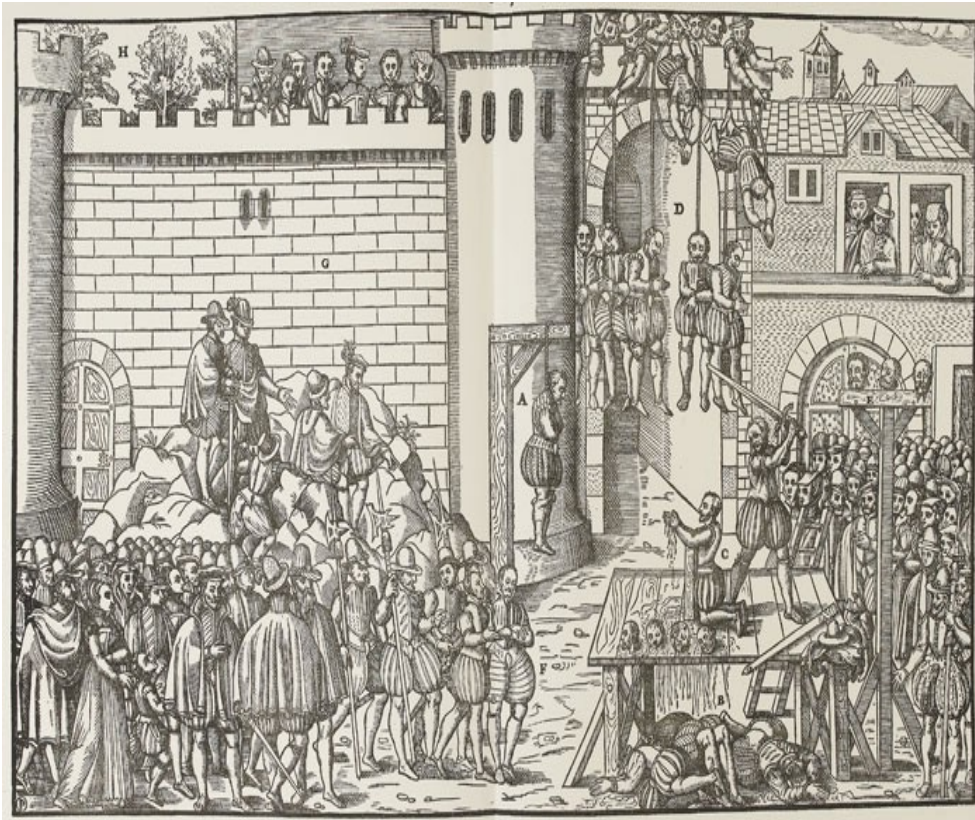 H
G
D
A
E
C
F
B